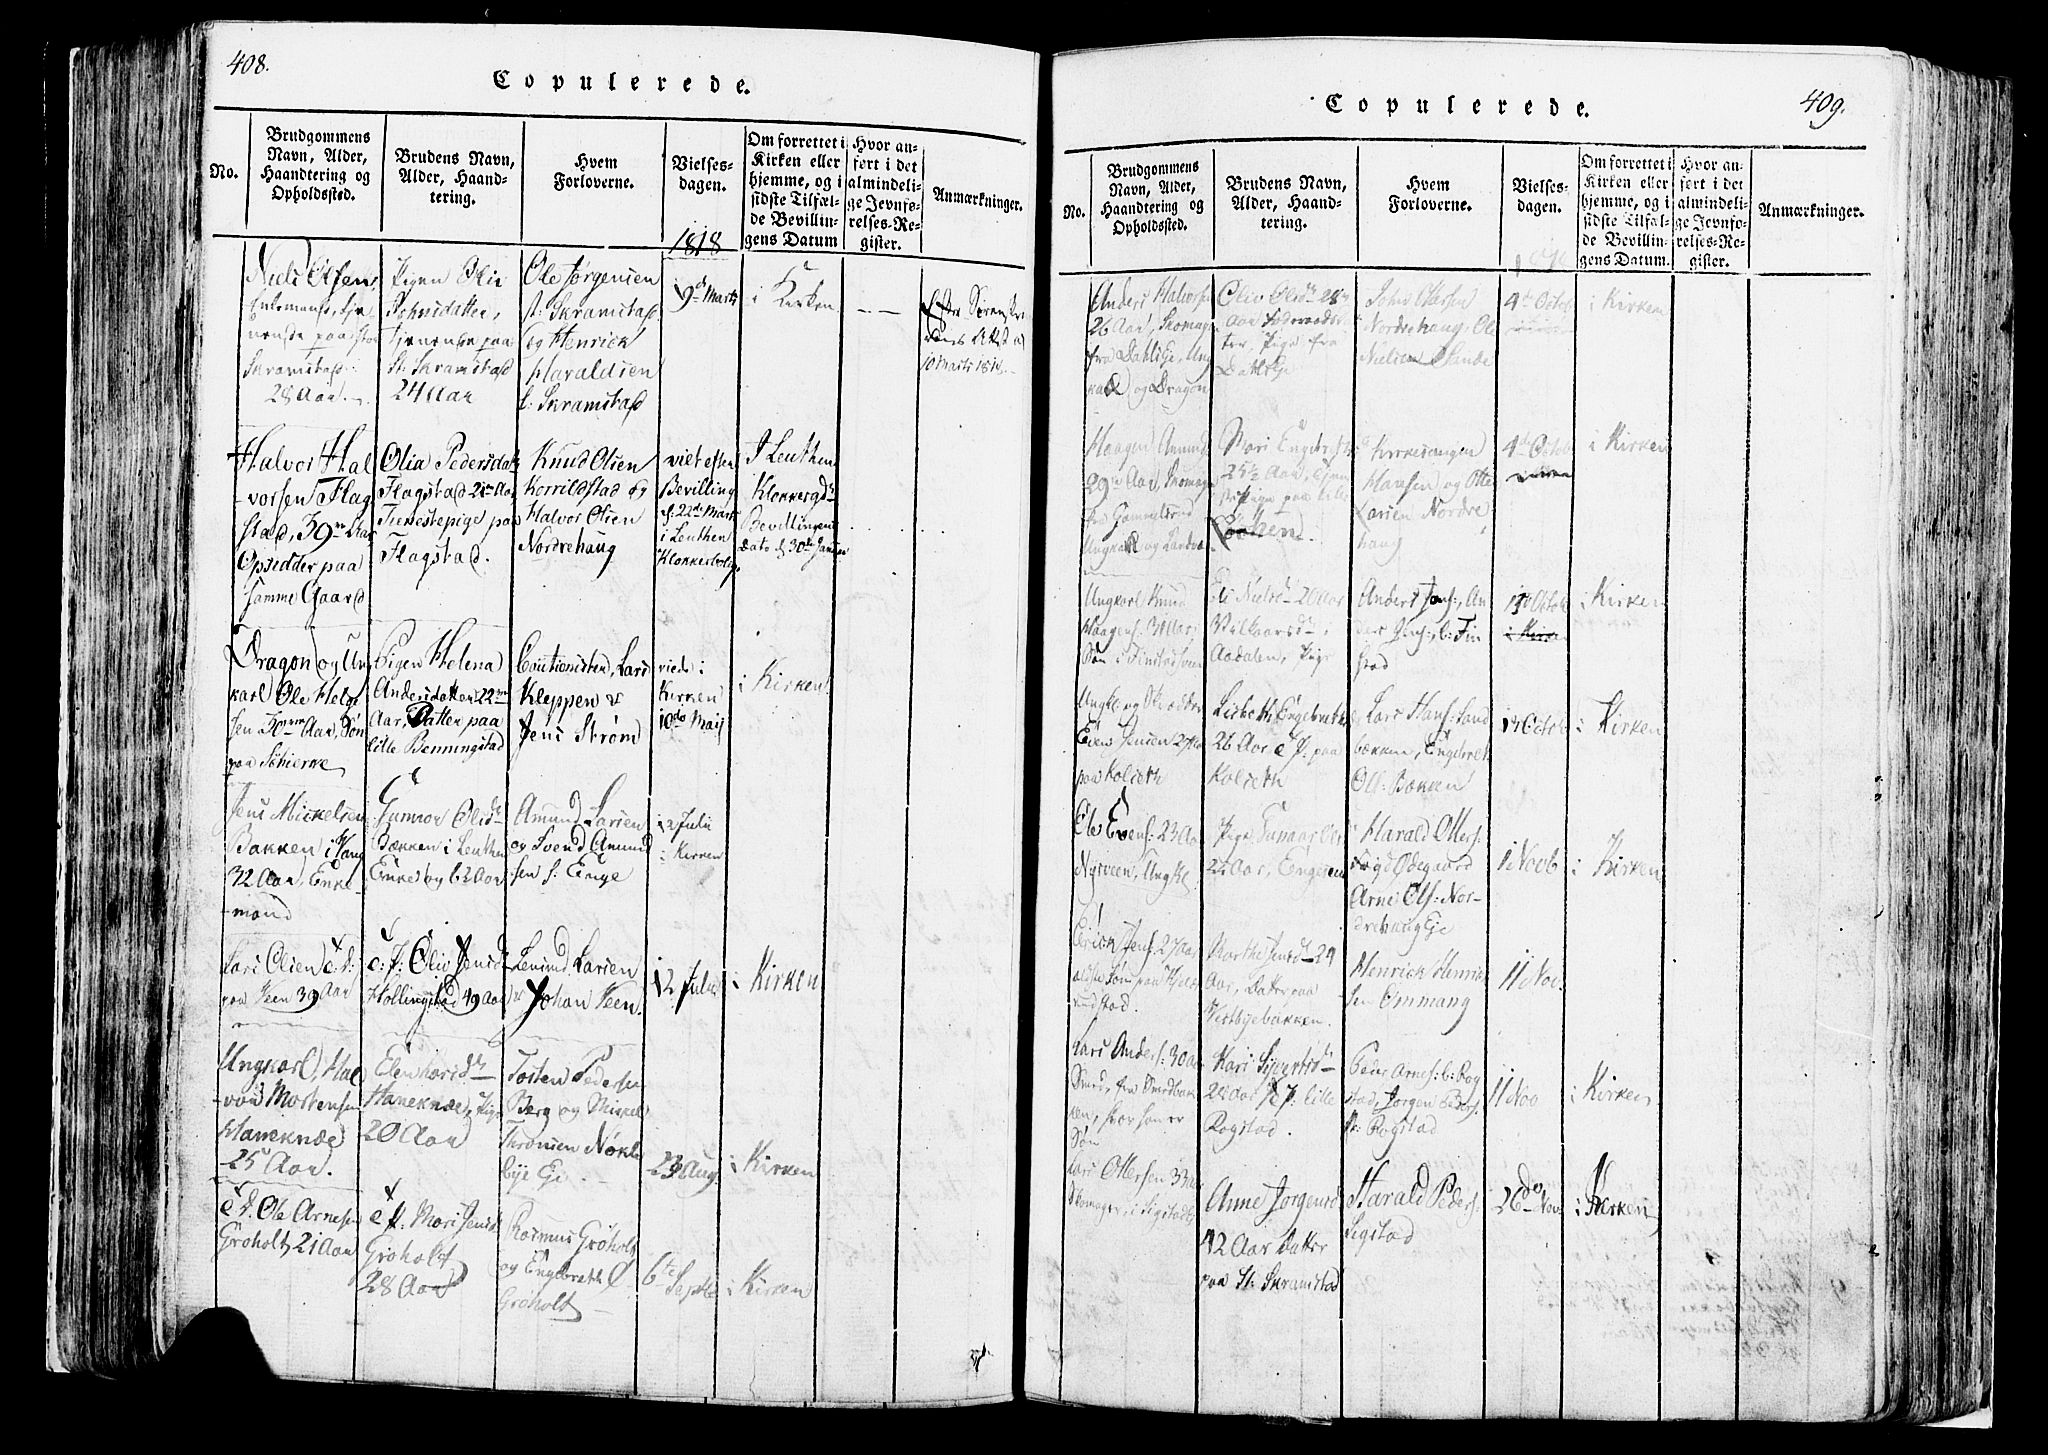 408.
Copulerede.
No.
Brudgommens
Navn, Alder,
Haandtering og
Opholdssted.
Brudens Navn,
Alder, Haand-
tering.
Hvem
Forloverne.
Vielses-
dagen.
Om forrettet i
Kirken eller
hjemme, og i
sidste Tilfæl-
de Bevillin-
gens Datum
Hvor an-
ført i det
almindeli-
ge Jevnfø-
relses-Re-
gister.
Anmærkninger.
1818
Niels Olsen,
Enkemand, tje-
nende paa
Skramstad
28 Aar
Pigen Oliv
Johnsdatter,
tjenende paa
St: Skramstad
24 Aar
Ole Jørgensen
st: Skramstad
og Henrick
Haraldsen
l: Skramstad
9de Marts
i Kirken
10 Marts 1818
Halvor Hal
-vorsen Flag
stad, 39 Aar
Opsidder paa
samme Gaard
Olia Pedersdatr
Flagstad 21 Aar
Tjenestepige paa
Flagstad.
Knud Olsen
Korrildstad og
Halvor Olsen
Nordrehaug
viet efter
Bevilling
d: 22de Marts
i Leuthen
Klokkerbolig
I Leuthen
Klokkergd
Bevillingens
Dato d 30te Januar
Dragon og Un
karl Ole Helge
sen 30 Aar, Søn
paa Schierke
Pigen Helena
Andersdatter 22
Aar, Datter paa
lille Benningstad
Cautionisten, Lars
Kleppen &
Jens Strøm
viede i
Kirken
10de Maij
i Kirken
Jens Mickelsen
Bakken i Vang
32 Aar, Enke
-mand
Gunnor Olsdr
Bækken i Leuthen
Enke og 62 Aar
Amund Larsen
og Svend Amund
sen f: Enge
12 Julii
i Kirken
Lars Olsen e: k:
paa Veen 39 Aar
e: p: Oliv Jensd
Hollingstad 49 Aar
Lars Larsen
& Johan Veen.
12 Julii
i Kirken
Ungkarl, Hal
-vor Mortensen
Haneknæ
25 Aar.
Elen
Haneknæ, Pige
20 Aar
Tosten Pedersen
Berg og Mickel
Thronsen Nøkle
bye Eje
23 Aug
i Kirken
e k. Ole Arnesen
Groholt 21 Aar
e p: Mari Jensd
Groholt
28 Aar
Rasmus Groholt
og Engebreth
Groholt
6te
Septbr
i Kirken
409.
Copulerede.
No.
Brudgommens
Navn, Alder,
Haandtering og
Opholdssted.
Brudens Navn,
Alder, Haand-
tering.
Hvem
Forloverne.
Vielses-
dagen.
Om forrettet i
Kirken eller
hjemme, og i
sidste Tilfæl-
de Bevillin-
gens Datum.
Hvor an-
ført i det
almindeli-
ge Jevnfø-
relses-Re-
gister.
Anmærkninger.
Anders Halvorsen
26 Aar, Skomager
fra Dahlseje, Ung
karl og Dragon
Oliv Olsdr 28
Aar
ter, Pige fra
Dahlseje
John Olsen
Nordrehaug, Ole
Nielsen Sande
4de Octob
i Kirken
Haagen Amunds
29 Aar, Skomager
fra Gammelsrud
Ungkarl og Landvær
Mari Engebretsd
25½ Aar, Tjene
stepige paa lille
Løken
Kirkesanger
Hansen og Otte
Larsen Nordre
haug
4de Octob
i Kirken
Ungkarl Knud
Haagens: 30 Aar
Søn i Finstadsveen
Eli Nielsd 20 Aar
Vilkaarsdr i
Aadalen, Pige
Anders Jens:, An
ders Jens:, b: Fin
stad
18 Octob
i Kirken
Ungkl og Skrædder
Even Jensen 27 Aar
paa Kolseth
Lisbeth Engebretsd
26 Aar e p: paa
Kolseth
Lars Hans: Sand
bækken, Engebret
Ols: Bækken
18 Octob
i Kirken
Ole Evens: 23 Aar
Nysveen, Ungkl
Pige Gunnor
22 Aar, Engesveen
Harald Otters:
Ødegaard
Arne Ols: Nor-
drehaug Eje
1 Novb
i Kirken
Erick Jens: 27 Aar
ældste Søn paa
rudstad.
Marthe Jensd 24
Aar, Datter paa
Vestbyebakken.
Henrick Henrick
sen Ommang
11 Nov.
Lars Anders: 30 Aar
Smed, fra Smedbak
ken, hvor han er
Søn
Kari Sivertsd
28 Aar e p: lille
Rogstad.
Peder Arnes: b: Rog
stad, Jørgen Peders:
st: Rogstad
11 Nov
i Kirken
Lars Ottersen 33 Aar
Skomager i Sigstad
Anne Jørgensd
42 Aar Datter
paa St: Skramstad
Harald Peders:
Sigstad
26de Nov:
i Kirken